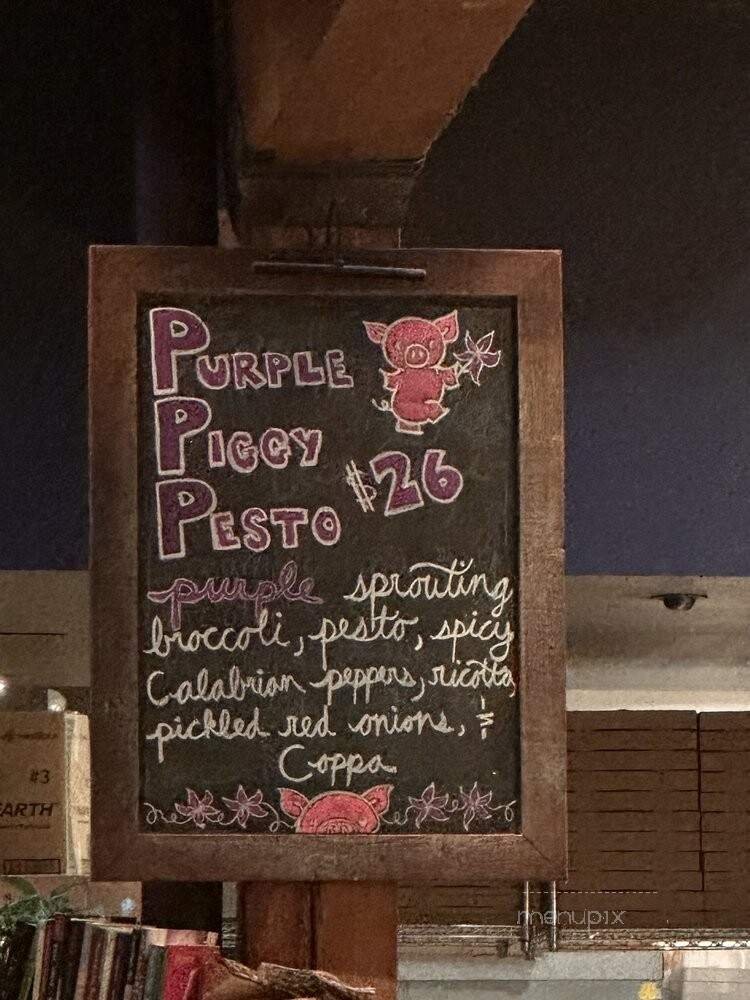 PURPLE
PIGGY
$26
PESTO
purple sprouting
broccoli, pesto, spicy
Calabrian peppers, ricotta,
pickled red onions, &
Coppa
#3
EARTH
menupix